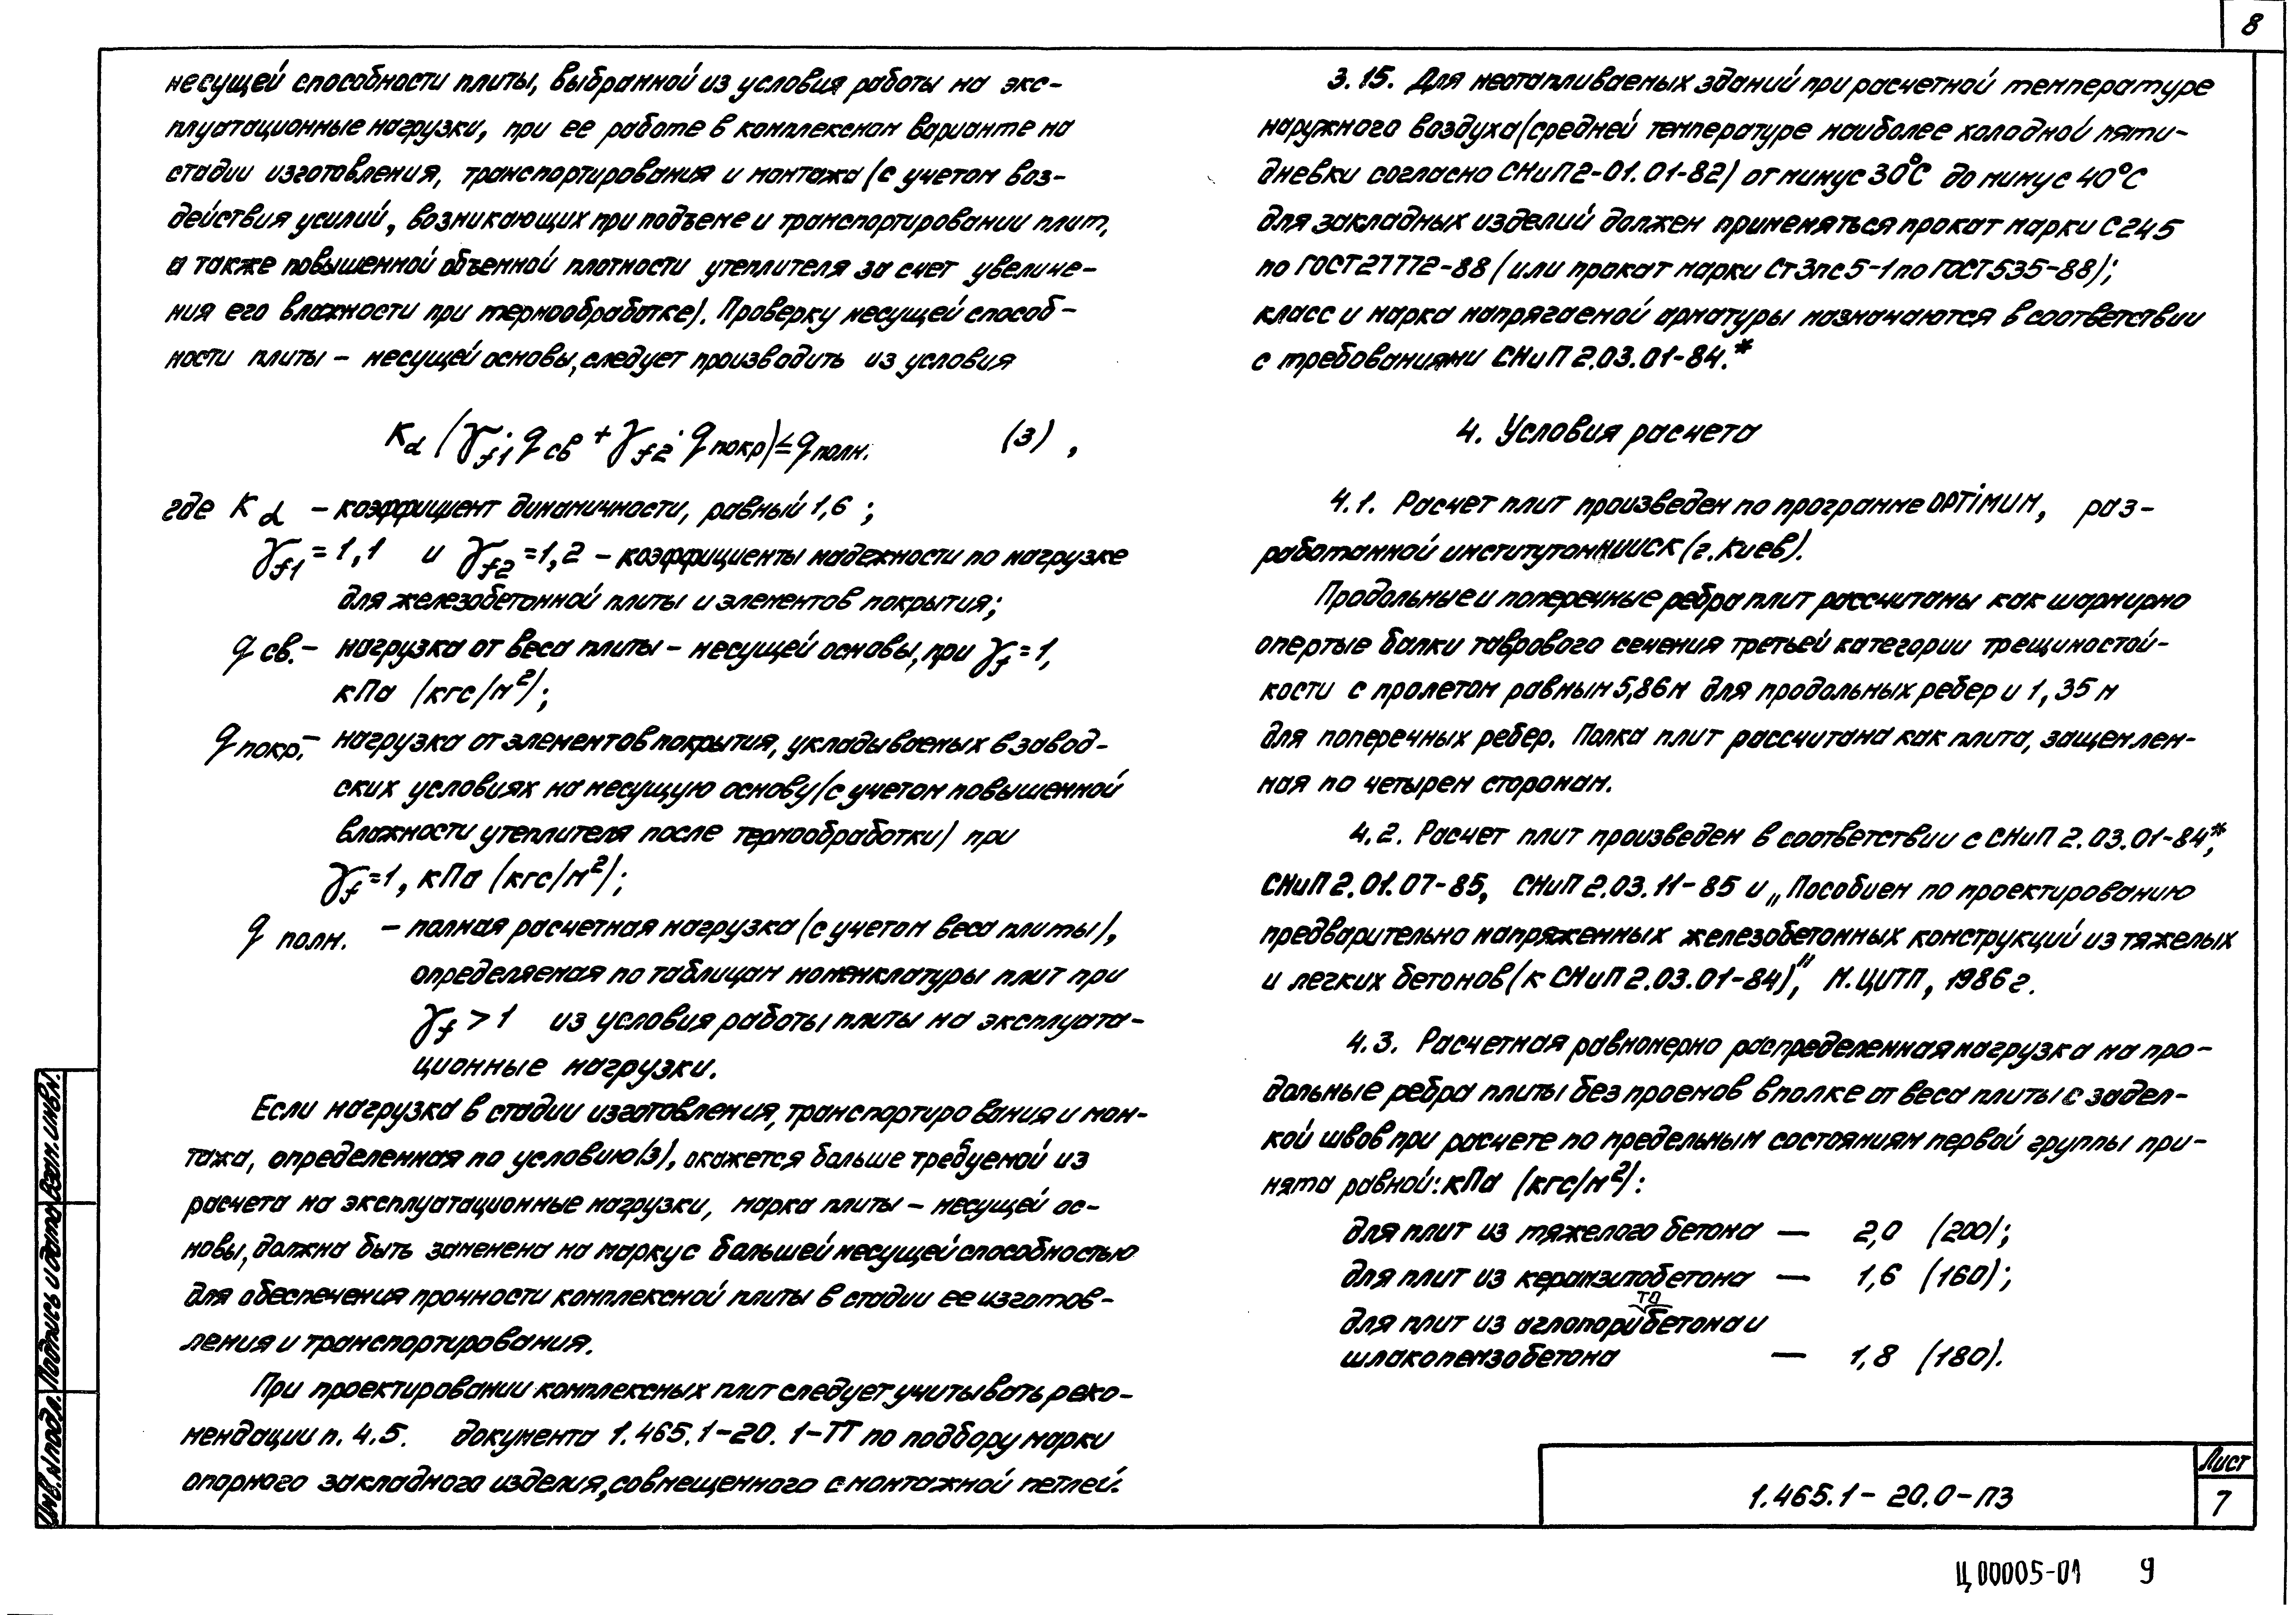 8
несущей способности плиты, выбранной из условия работы на экс-
плуатационные нагрузки, при ее работе в комплексном варианте на
стадии изготовления, транспортирования и монтажа (с учетом воз-
действия усилий, возникающих при подъеме и транспортировании плит,
а также повышенной объемной плотности утеплителя за счет увеличе-
ния его влажности при термообработке). Проверку несущей способ-
ности плиты – несущей основы, следует производить из условия
Kd (γf1·qсв + γf2·qпокр) ≤ qполн. (3),
где Kd – коэффициент динамичности, равный 1,6;
γf1 = 1,1 и γf2 = 1,2 – коэффициенты надежности по нагрузке
для железобетонной плиты и элементов покрытия;
qсв. – нагрузка от веса плиты – несущей основы, при γf = 1,
кПа (кгс/м²);
qпокр. – нагрузка от элементов покрытия, укладываемых в завод-
ских условиях на несущую основу (с учетом повышенной
влажности утеплителя после термообработки) при
γf = 1, кПа (кгс/м²);
qполн. – полная расчетная нагрузка (с учетом веса плиты),
определяемая по таблицам номенклатуры плит при
γf > 1 из условия работы плиты на эксплуата-
ционные нагрузки.
Если нагрузка в стадии изготовления, транспортирования и мон-
тажа, определенная по условию (3), окажется больше требуемой из
расчета на эксплуатационные нагрузки, марка плиты – несущей ос-
новы, должна быть заменена на марку с большей несущей способностью
для обеспечения прочности комплексной плиты в стадии ее изготов-
ления и транспортирования.
При проектировании комплексных плит следует учитывать реко-
мендации п. 4.5. документа 1.465.1-20.1-ТТ по подбору марки
опорного закладного изделия, совмещенного с монтажной петлей.
3.15. Для неотапливаемых зданий при расчетной температуре
наружного воздуха (средней температуре наиболее холодной пяти-
дневки согласно СНиП 2-01.01-82) от минус 30°С до минус 40°С
для закладных изделий должен применяться прокат марки С245
по ГОСТ 27772-88 (или прокат марки Ст3пс5-1 по ГОСТ 535-88);
класс и марка напрягаемой арматуры назначаются в соответствии
с требованиями СНиП 2.03.01-84.*
4. Условия расчета
4.1. Расчет плит произведен по программе OPTIMUM, раз-
работанной институтом НИИСК (г. Киев).
Продольные и поперечные ребра плит рассчитаны как шарнирно
опертые балки таврового сечения третьей категории трещиностой-
кости с пролетом равным 5,86 м для продольных ребер и 1,35 м
для поперечных ребер. Полка плит рассчитана как плита, защемлен-
ная по четырем сторонам.
4.2. Расчет плит произведен в соответствии с СНиП 2.03.01-84*,
СНиП 2.01.07-85, СНиП 2.03.11-85 и „Пособием по проектированию
предварительно напряженных железобетонных конструкций из тяжелых
и легких бетонов (к СНиП 2.03.01-84)", М. ЦИТП, 1986 г.
4.3. Расчетная равномерно распределенная нагрузка на про-
дольные ребра плиты без проемов в полке от веса плиты с задел-
кой швов при расчете по предельным состояниям первой группы при-
нята равной: кПа (кгс/м²):
для плит из тяжелого бетона — 2,0 (200);
для плит из керамзитобетона — 1,6 (160);
для плит из аглопоритобетона и
шлакопемзобетона — 1,8 (180).
Инв. N подл. Подпись и дата Взам. инв. N.
1.465.1-20.0-ПЗ
Лист
7
Ц00005-01 9